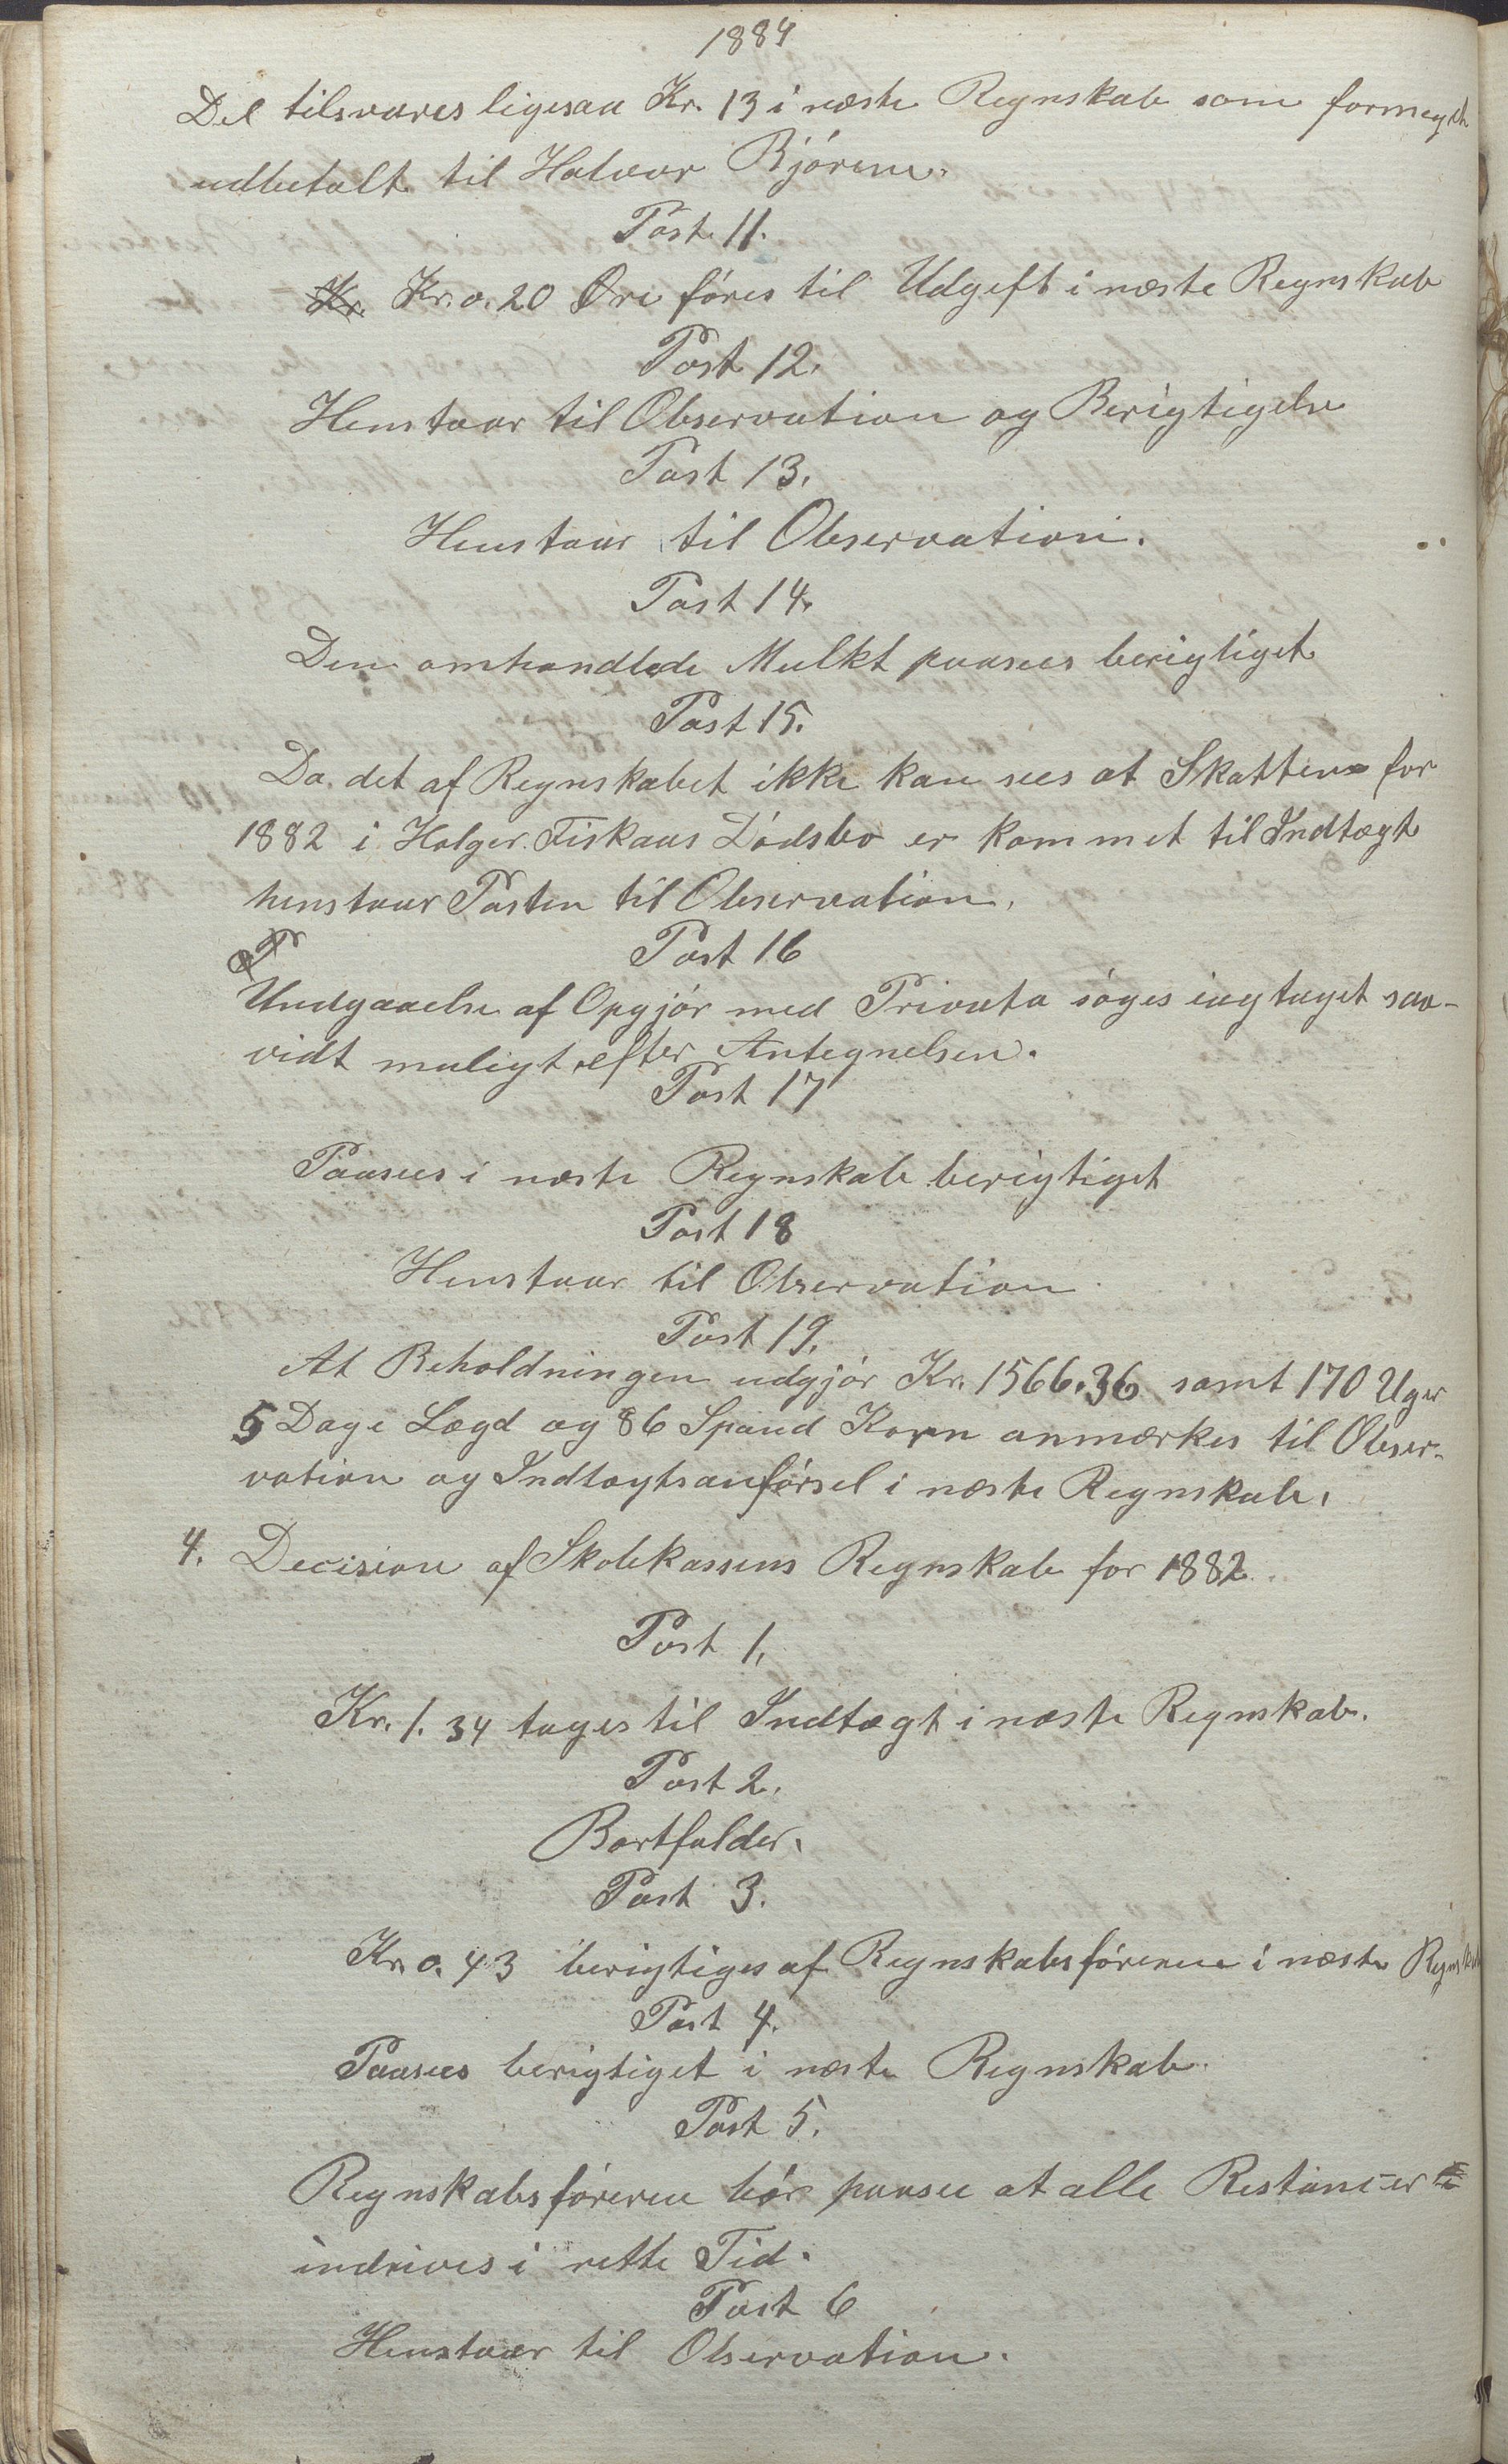 1884
Det tilsvares ligesaa Kr. 13 i næste Regnskab som formeget
udbetalt til Halvor Bjóren.
Post 11.
Kr. Kr. o. 20 Óre fóres til Udgift i næste Regnskab
Post 12.
Henstaar til Observation og Berigtigelse
Post 13.
Henstaar til Observation.
Post 14.
Den omhandlede Mulkt paasees berigtiget
Post 15.
Da det af Regnskabet ikke kan sees at Skatten for
1882 i Holger Fiskaas Dódsbo er kommet til Indtægt
henstaar Posten til Observation.
Post 16
Undgaaelse af Opgjór med Privata sóges iagtaget saa-
vidt muligt efter Antegnelsen.
Post 17
Paasees i næste Regnskab berigtiget
Post 18
Henstaar til Observation
Post 19.
At Beholdningen udgjór Kr. 1566.36 samt 170 Uger
5 Dage Lægd og 86 Spand Korn anmærkes til Obser-
vation og Indtægtsanfórsel i næste Regnskab.
4. Decision af Skolekassens Regnskab for 1882.
Post 1.
Kr. 1. 34 tages til Indtægt i næste Regnskab.
Post 2.
Bortfalder.
Post 3.
Kr. o. 43 berigtiges af Regnskabsfóreren i næste Regnskab
Post 4.
Paasees berigtiget i næste Regnskab.
Post 5.
Regnskabsfóreren bór paasee at alle Restancer
indrives i rette Tid.
Post 6
Henstaar til Observation.